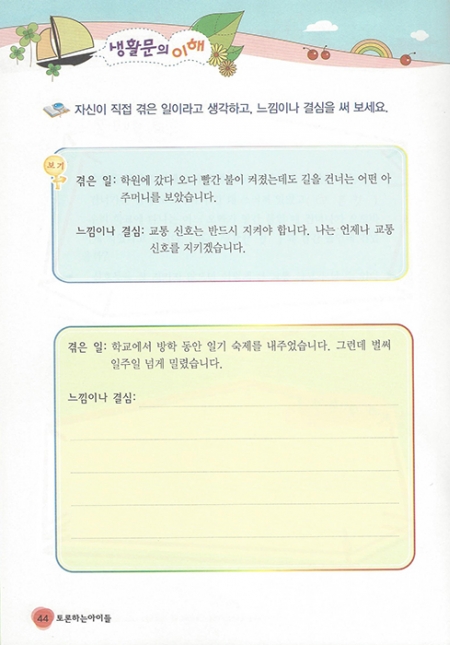 생활문의 이해
자신이 직접 겪은 일이라고 생각하고, 느낌이나 결심을 써 보세요.
보기
겪은 일: 학원에 갔다 오다 빨간 불이 켜졌는데도 길을 건너는 어떤 아
주머니를 보았습니다.
느낌이나 결심: 교통 신호는 반드시 지켜야 합니다. 나는 언제나 교통
신호를 지키겠습니다.
겪은 일: 학교에서 방학 동안 일기 숙제를 내주었습니다. 그런데 벌써
일주일 넘게 밀렸습니다.
느낌이나 결심:
44 토론하는아이들